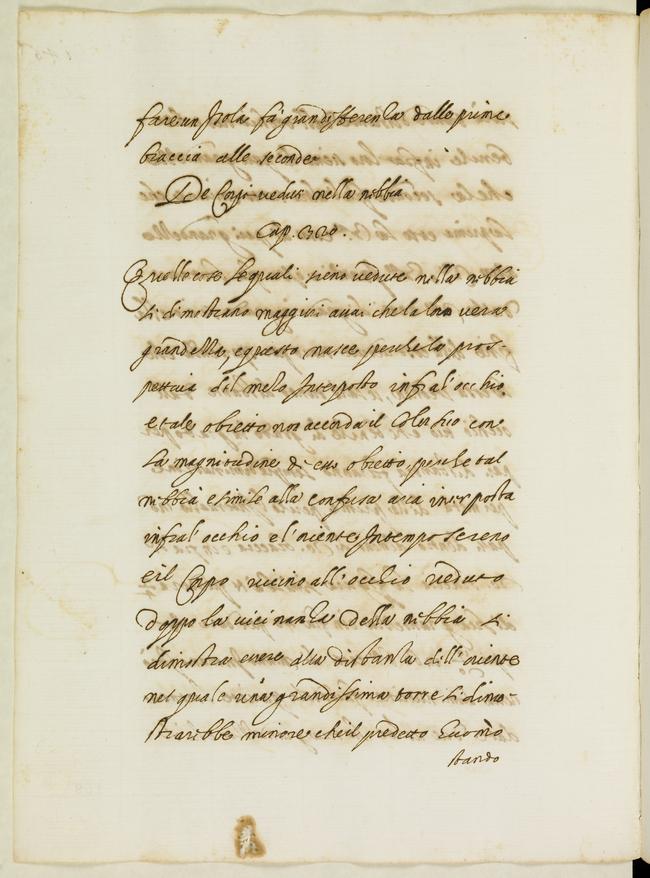 fare un Isola fà grandifferenza dalle prime
braccia alle seconde
De Corpi veduti nella nibbia
Cap. 320.
Quelle cose le quali sieno vedute nella nibbia
si dimostrano maggiori assai che la loro vera
grandezza, e questo nasce perche la pros-
pettiva del mezo Interposto infral' occhio
e tale obietto non accorda il Color suo con
la magnitudine di esso obietto, perche tal
nibbia e simile alla confusa aria interposta
infral' occhio e l' oriente In tempo sereno
e il Corpo vicino all' occhio veduto
doppo la vicinanza della nibbia si
dimostra essere alla distanza dell' oriente
nel quale una grandissima torre si dimo-
strarebbe minore che il predetto Huomo
stando